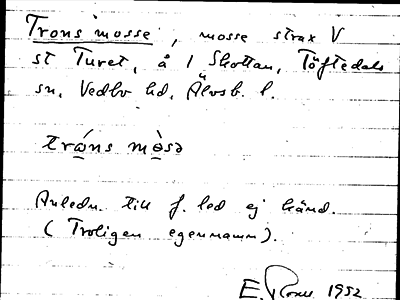 Trons mosse, mosse strax V
st Turet, å 1 Skottan, Töftedals
sn, Vedbo hd, Älvsb. l.
tråns mòsə
Anledn. till f. led ej känd.
(Troligen egennamn).
E. 1952